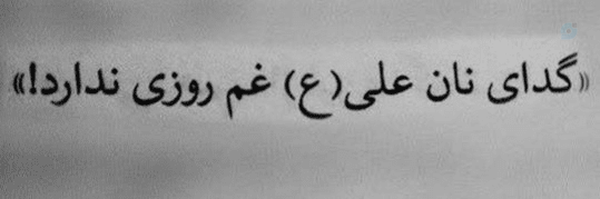 «گدای نان علی(ع) غم روزی ندارد!»